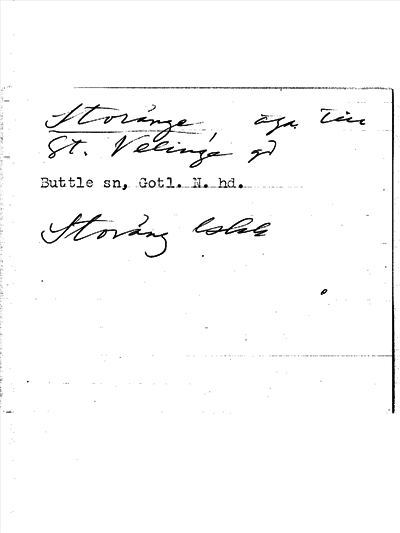 Storänge äga till
St. Velinge gd
Buttle sn, Gotl. N. hd.
Storäng